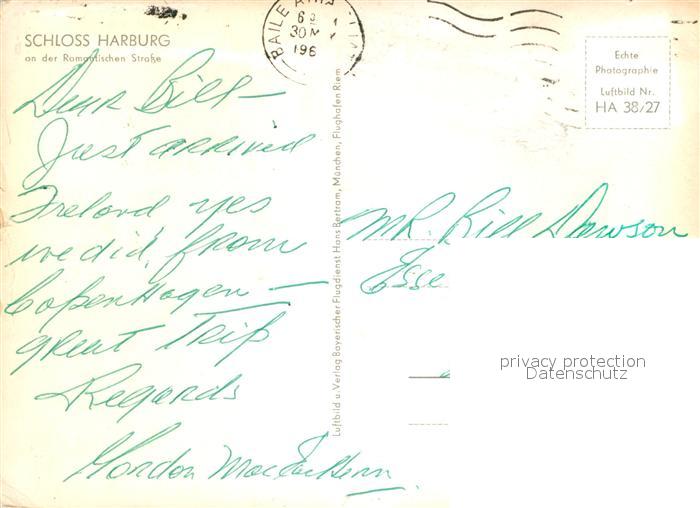 SCHLOSS HARBURG
an der Romantischen Straße
BAILE
30
196
Echte
Photographie
Luftbild Nr.
HA 38/27
Dear Bill –
Just arrived
Ireland yes
we did, from
Copenhagen –
great Trip
Regards
Gordon
Luftbild u. Verlag Bayerischer Flugdienst Hans Bertram, München, Flughafen Riem
MR. Bill Dawson
Esse
privacy protection
Datenschutz